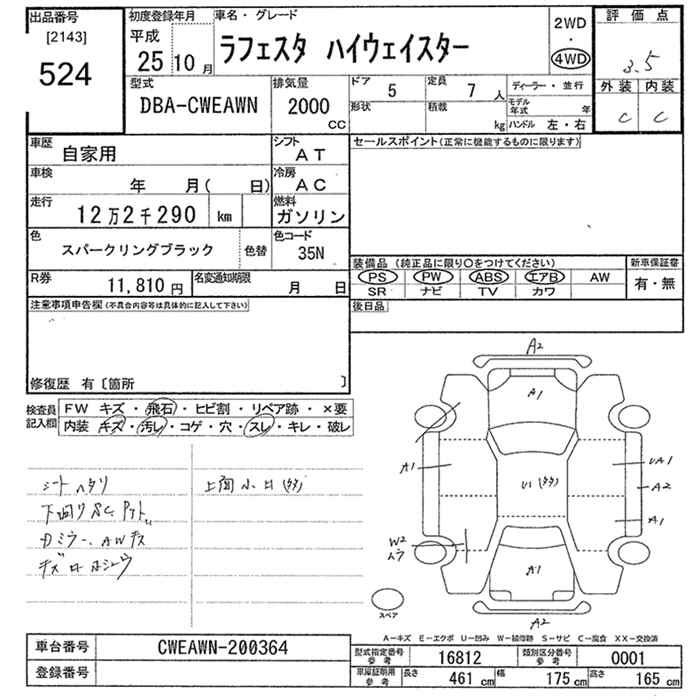 出品番号
[2143]
524
初度登録年月
平成
25年10月
車名・グレード
ラフェスタ ハイウェイスター
2WD
・
4WD
評価点
3.5
外装 内装
C C
型式
DBA-CWEAWN
排気量
2000
CC
ドア 5
定員 7 人
ディーラー・並行
形状
積載 kg
モデル年式 年
ハンドル 左・右
車歴
自家用
シフト
AT
セールスポイント(正常に機能するものに限ります)
車検
年 月( 日)
冷房
AC
走行
12万2千290 km
燃料
ガソリン
色
スパークリングブラック
色替
色コード
35N
装備品 (純正品に限り〇をつけてください)
新車保証書
PS PW ABS エアB AW
有・無
SR ナビ TV カワ
R券
11,810 円
名変通知期限
月 日
注意事項申告欄(不具合内容等は具体的に記入して下さい)
後日品
修復歴 有〔箇所 〕
検査員記入欄
FW キズ・飛石・ヒビ割・リペア跡・×要
内装 キズ・汚レ・コゲ・穴・スレ・キレ・破レ
シートヘタリ
下廻りSC
AWキズ
A2
A1
A1
U1
UA1
A2
A1
W2
ムラ
A1
A2
スペア
A―キズ E―エクボ U―凹み W―補修跡 S―サビ C―腐食 XX―交換済
車台番号
CWEAWN-200364
登録番号
型式指定番号 参考
16812
類別区分番号 参考
0001
車庫証明用 参考
長さ 461 cm
幅 175 cm
高さ 165 cm